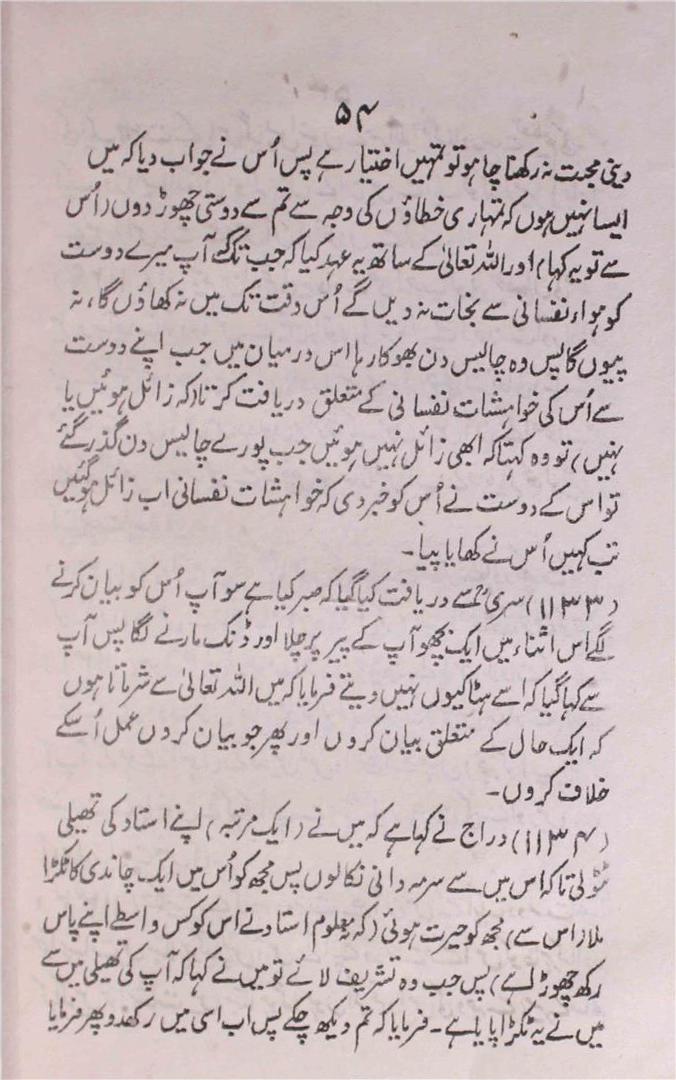 ۵۴
دینی محبت نہ رکھنا چاہو تو تمہیں اختیار ہے پس اُس نے جواب دیا کہ میں
ایسا نہیں ہوں کہ تمہاری خطاؤں کی وجہ سے تم سے دوستی چھوڑ دوں (اُس
سے تو یہ کہا) اور اللہ تعالیٰ کے ساتھ یہ عہد کیا کہ جب تک آپ میرے دوست
کو ہواء نفسانی سے نجات نہ دیں گے اُس وقت تک میں نہ کھاؤں گا، نہ
پیوں گا پس وہ چالیس دن بھوکا رہا اس درمیان میں جب اپنے دوست
سے اُس کی خواہشات نفسانی کے متعلق دریافت کرتا (کہ زائل ہوئیں یا
نہیں) تو وہ کہتا کہ ابھی زائل نہیں ہوئیں جب پورے چالیس دن گذر گئے
تو اس کے دوست نے اُس کو خبر دی کہ خواہشات نفسانی اب زائل ہو گئیں
تب کہیں اُس نے کھایا پیا۔
(۱۱۳۳) سریؒ سے دریافت کیا گیا کہ صبر کیا ہے سو آپ اُس کو بیان کرنے
لگے اس اثناء میں ایک بچھو آپ کے پیر پر چلا اور ڈنک مارنے لگا پس آپ
سے کہا گیا کہ اسے ہٹا کیوں نہیں دیتے فرمایا کہ میں اللہ تعالیٰ سے شرماتا ہوں
کہ ایک حال کے متعلق بیان کروں اور پھر جو بیان کروں عمل اُسکے
خلاف کروں۔
(۱۱۳۴) دراج نے کہا ہے کہ میں نے (ایک مرتبہ) اپنے استاد کی تھیلی
ٹٹولی تاکہ اس میں سے سرمہ دانی نکالوں پس مجھ کو اُس میں ایک چاندی کا ٹکڑا
ملا (اس سے) مجھ کو حیرت ہوئی (کہ نہ معلوم استاد نے اس کو کس واسطے اپنے پاس
رکھ چھوڑا ہے) پس جب وہ تشریف لائے تو میں نے کہا کہ آپ کی تھیلی میں سے
میں نے یہ ٹکڑا پایا ہے۔ فرمایا کہ تم دیکھ چکے پس اب اسی میں رکھدو پھر فرمایا